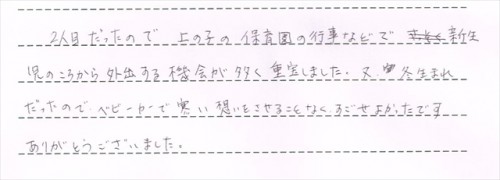 2人目だったので 上の子の保育園の行事などで 新生
児のころから外出する機会が多く重宝しました。又 冬生まれ
だったので、ベビーカーで寒い想いをさせることなく、すごせよかったです
ありがとうございました。